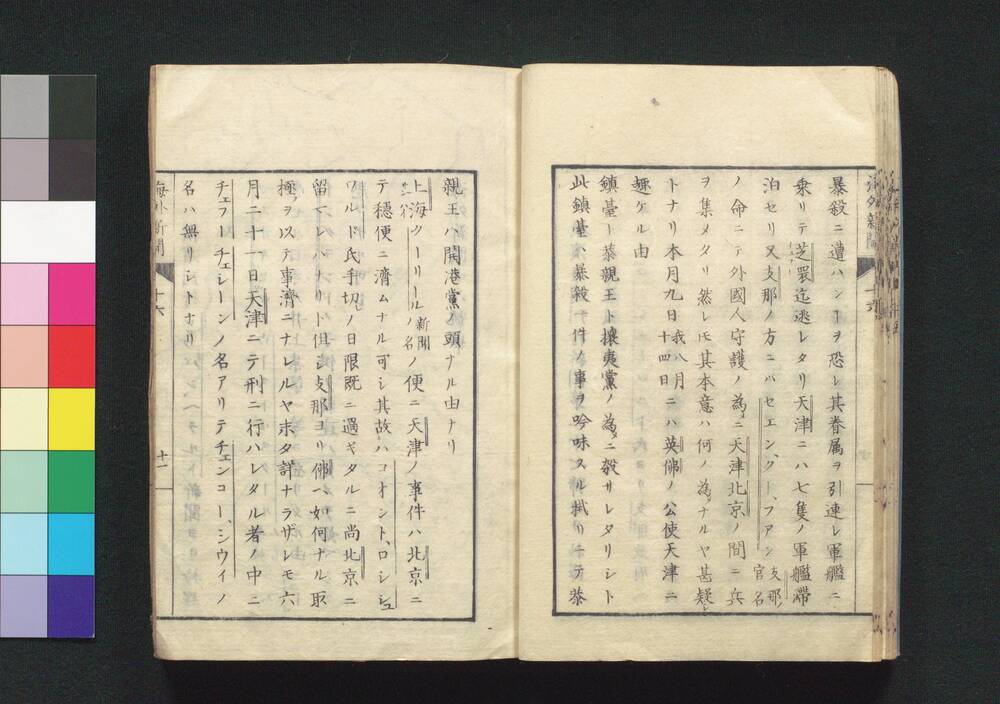 暴殺ニ遭ハンヿヲ恐レ其眷属ヲ引連レ軍艦ニ
乗リテ芝罘迄逃レタリ天津ニハ七隻ノ軍艦滞
泊セリ又支那ノ方ニハセエン、グー、フアン支那ノ官名
ノ命ニテ外國人守護ノ為メニ天津北京ノ間ニ兵
ヲ集メタリ然レ𪜈其本意ハ何ノ為メナルヤ甚疑シ
トナリ本月九日我八月十四日ニハ英佛ノ公使天津ニ
趣ケル由
鎮臺ト恭親王ト攘夷黨ノ為メニ殺サレタリシト
此鎮臺ハ暴殺一件ノ事ヲ吟味スル掛リニテ恭
海外新聞
十六
親王ハ開港黨ノ頭ナル由ナリ
上海クーリール新聞ノ名ノ便ニ天津ノ事件ハ北京ニ
テ穏便ニ濟ムナル可シ其故ハコオント、ロシシュ
ワルド氏手切ノ日限既ニ過ギタルニ尚北京ニ
留マレバナリト但シ支那ヨリ佛ヘ如何ナル取
極ヲ以テ事濟ニナレルヤ未タ詳ナラザレモ六
月二十一日天津ニテ刑ニ行ハレタル者ノ中ニ
チェフーチェシーンノ名アリテチェンコー、シウイノ
名ハ無リシトナリ
海外新聞
十六
十一